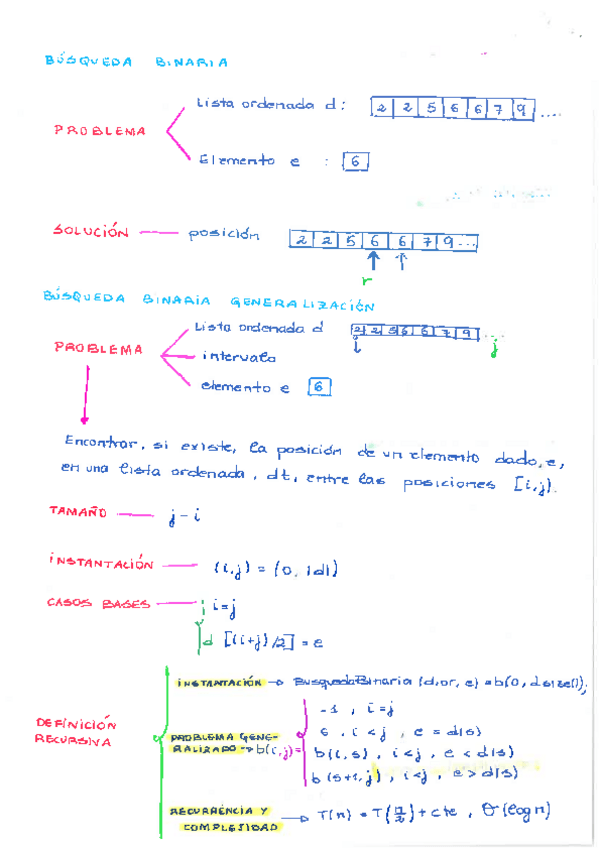 BÚSQUEDA BINARIA
Lista ordenada d: 2 2 5 6 6 7 9 ....
PROBLEMA
Elemento e : 6
SOLUCIÓN posición 2 2 5 6 6 7 9...
r
BÚSQUEDA BINARIA GENERALIZACIÓN
Lista ordenada d 2 2 5 6 6 7 9 ...
PROBLEMA intervalo i j
elemento e 6
Encontrar, si existe, la posición de un elemento dado, e,
en una lista ordenada, dt, entre las posiciones [i,j).
TAMAÑO j-i
INSTANTACIÓN (i,j) = (0, |d|)
CASOS BASES i=j
d [(i+j)/2] = e
INSTANTACIÓN → BusquedaBinaria (d,or, e) = b(0, d.size());
DEFINICIÓN
RECURSIVA
-1 , i=j
PROBLEMA GENE- s , i<j , e = d(s)
RALIZADO → b(i,j) = b(i,s) , i<j , e < d(s)
b(s+1,j) , i<j , e > d(s)
RECURRENCIA Y → T(n) = T(n/2) + cte , Θ(log n)
COMPLEJIDAD